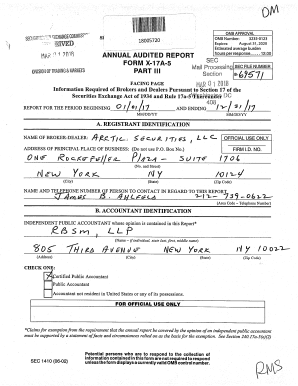 DM
SECURITIES AND EXCHANGE COMMISSION
RECEIVED
MAR 01 2018
DIVISION OF TRADING & MARKETS
18005720
OMB APPROVAL
OMB Number: 3235-0123
Expires: August 31, 2020
Estimated average burden
hours per response . . . 12.00
ANNUAL AUDITED REPORT
FORM X-17A-5
PART III
SEC
Mail Processing
Section
MAR 01 2018
SEC FILE NUMBER
8-69571
FACING PAGE
Information Required of Brokers and Dealers Pursuant to Section 17 of the
Securities Exchange Act of 1934 and Rule 17a-5 Thereunder
DC
408
REPORT FOR THE PERIOD BEGINNING 01/01/17 AND ENDING 12/31/17
MM/DD/YY MM/DD/YY
A. REGISTRANT IDENTIFICATION
NAME OF BROKER-DEALER: ARCTIC SECURITIES, LLC
OFFICIAL USE ONLY
ADDRESS OF PRINCIPAL PLACE OF BUSINESS: (Do not use P.O. Box No.)
FIRM I.D. NO.
ONE ROCKEFELLER PLAZA - SUITE 1706
(No. and Street)
NEW YORK NY 10124
(City) (State) (Zip Code)
NAME AND TELEPHONE NUMBER OF PERSON TO CONTACT IN REGARD TO THIS REPORT
JAMES B. AHLFELD 212-739-0622
(Area Code – Telephone Number)
B. ACCOUNTANT IDENTIFICATION
INDEPENDENT PUBLIC ACCOUNTANT whose opinion is contained in this Report*
RBSM, LLP
(Name – if individual, state last, first, middle name)
805 THIRD AVENUE NEW YORK NY 10022
(Address) (City) (State) (Zip Code)
CHECK ONE:
Certified Public Accountant
Public Accountant
Accountant not resident in United States or any of its possessions.
FOR OFFICIAL USE ONLY
*Claims for exemption from the requirement that the annual report be covered by the opinion of an independent public accountant
must be supported by a statement of facts and circumstances relied on as the basis for the exemption. See Section 240.17a-5(e)(2)
Potential persons who are to respond to the collection of
information contained in this form are not required to respond
unless the form displays a currently valid OMB control number.
SEC 1410 (06-02)
RMS